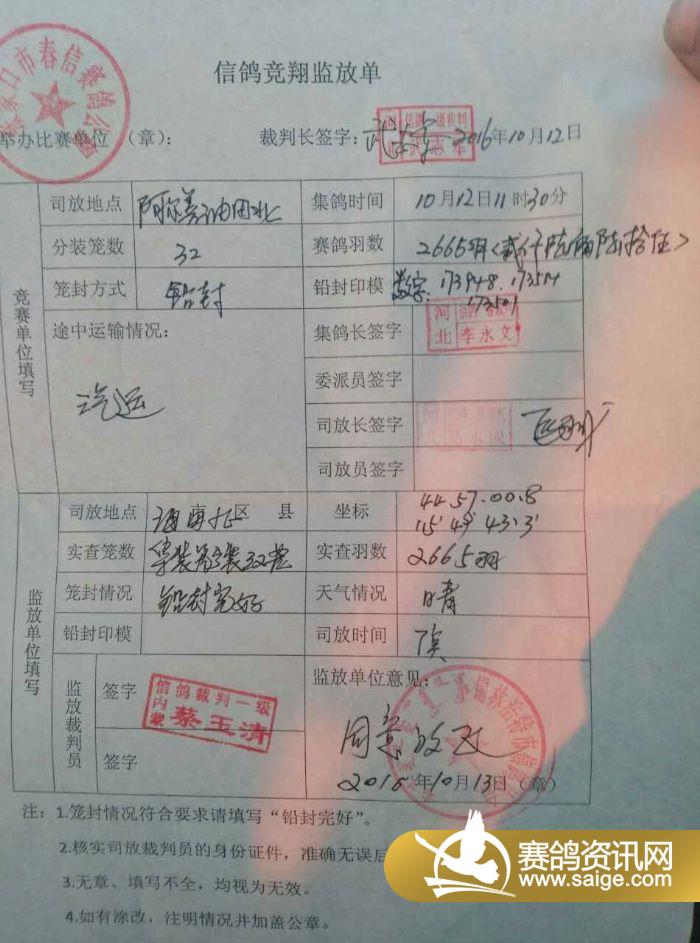 信鸽竞翔监放单
春信赛鸽公
举办比赛单位 (章): 裁判长签字: 2016年10月12日
竞赛单位填写
司放地点 集鸽时间 10月12日11时30分
分装笼数 32 赛鸽羽数 2665羽
笼封方式 铅封 铅封印模 数字. 173948. 173514
173501
途中运输情况: 汽运 集鸽长签字 河北 李永文
委派员签字
司放长签字
司放员签字
监放单位填写
司放地点 区 县 坐标 44 57.00.8
115°49′43.3″
实查笼数 实查羽数 2665羽
笼封情况 铅封完好 天气情况 晴
铅封印模 司放时间 7点
监放裁判员
签字 信鸽裁判一级 内蒙 蔡玉清
签字
监放单位意见:
同意放飞
2016年10月13日 (章)
注: 1.笼封情况符合要求请填写“铅封完好”。
2.核实司放裁判员的身份证件，准确无误后
3.无章、填写不全，均视为无效。
4.如有涂改，注明情况并加盖公章。
赛鸽资讯网
www.saige.com